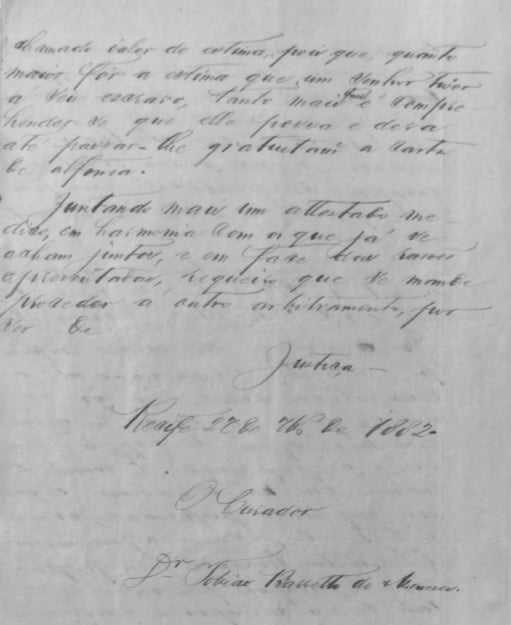 chamado valor de estima, pois que, quanto
maior fôr a estima que um senhor tiver
a seu escravo, tanto mais facil é compre
hender-se que elle possa e deva
até passar-lhe gratuitamᵉ a carta
de alforria.
Juntando mais um attestado me-
dico, em harmonia com o que já se
acham juntos, e em face das rasões
apresentadas, requeiro que se mande
proceder a outro arbitramento, por
ser de
Justiça —
Recife 27 de 7bº de 1882.
O Curador
Dr. Tobias Barretto de Menezes.